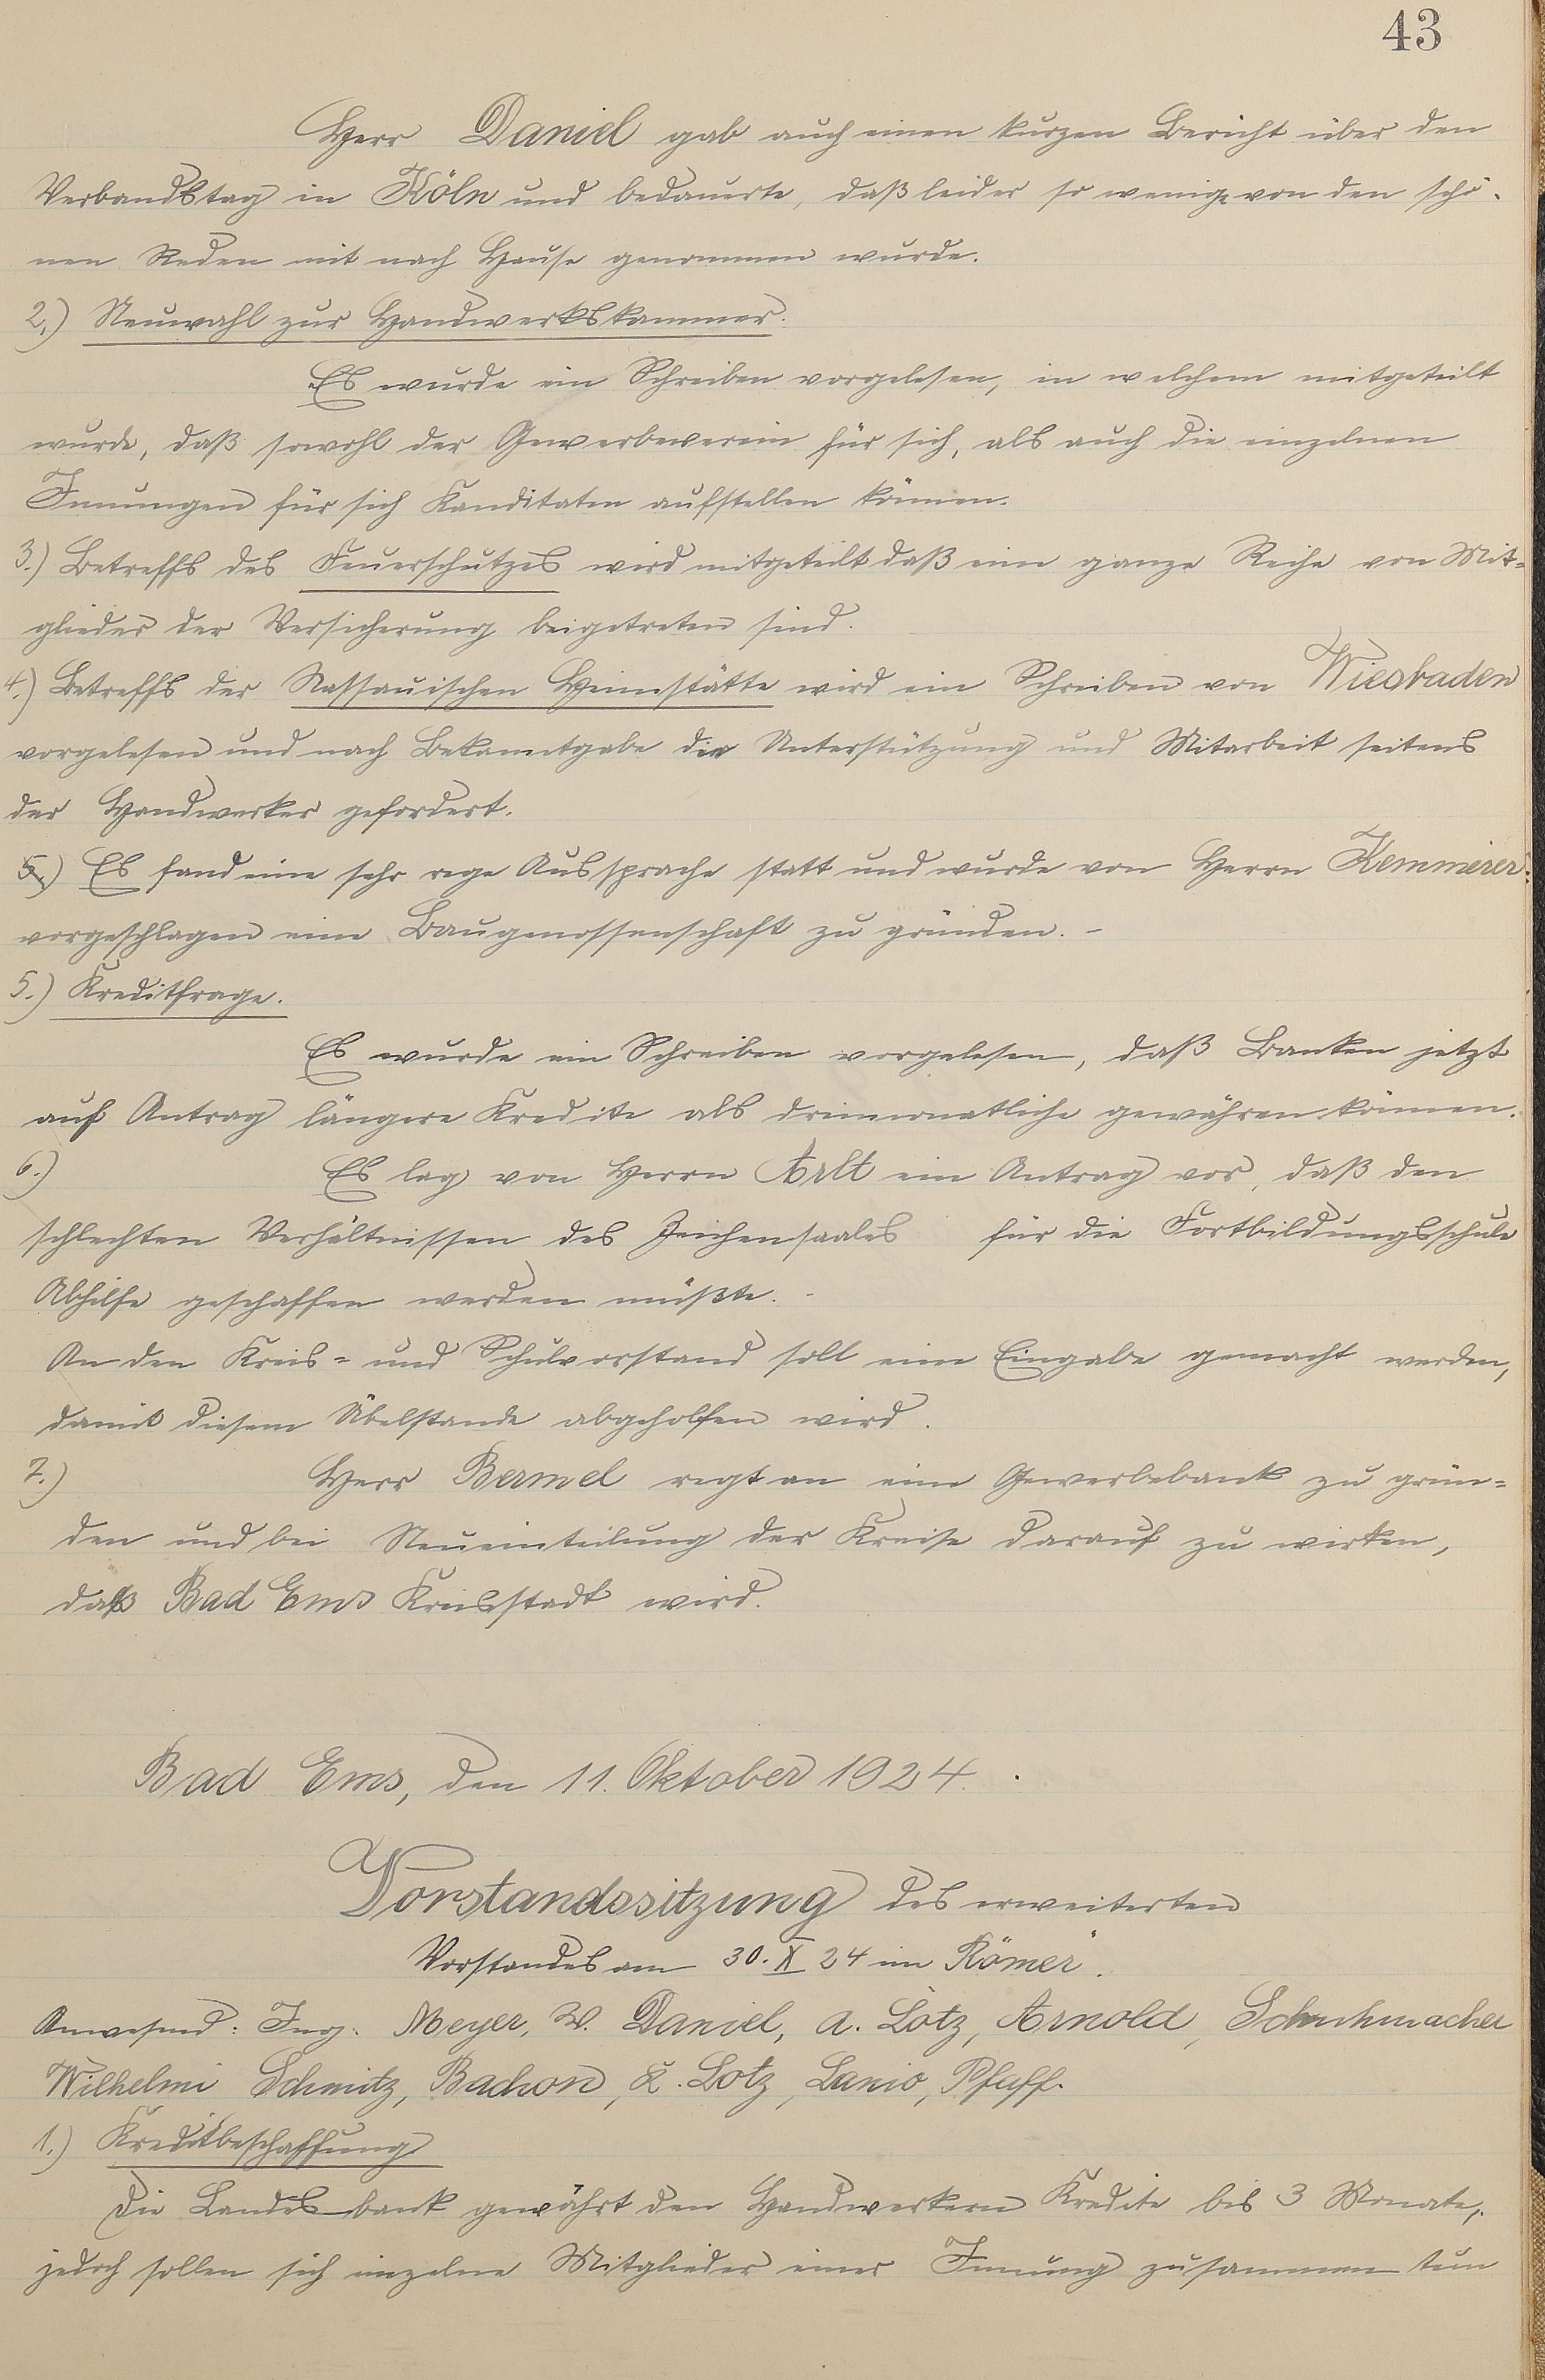 43
Herr Daniel gab auch einen kurzen Bericht über den
Verbandstag in Köln und bedauerte, daß leider so wenige von den schö-
nen Reden mit nach Hause genommen wurde.
2.) Neuwahl zur Handwerkskammer.
Es wurde ein Schreiben vorgelesen, in welchem mitgeteilt
wurde, daß sowohl der Gewerbeverein für sich, als auch die einzelnen
Innungen für sich Kanditaten aufstellen können.
3.) Betreffs des Feuerschutzes wird mitgeteilt daß eine ganze Reihe von Mit=
glieder der Versicherung beigetreten sind.
4.) Betreffs der Nassauischen Heimstätte wird ein Schreiben von Wiesbaden
vorgelesen und nach Bekanntgabe die Unterstützung und Mitarbeit seitens
der Handwerker gefordert.
5.) Es fand eine sehr rege Aussprache statt und wurde von Herrn Kemmerer
vorgeschlagen eine Baugenossenschaft zu gründen. -
5.) Kreditfrage.
Es wurde ein Schreiben vorgelesen, daß Banken jetzt
auf Antrag längere Kredite als dreimonatliche gewähren können.
6.) Es lag von Herrn Arlt ein Antrag vor, daß den
schlechten Verhältnissen des Zeichensaales für die Fortbildungsschule
Abhilfe geschaffen werden müßte. -
An den Kreis= und Schulvorstand soll eine Eingabe gemacht werden,
damit diesem Übelstande abgeholfen wird.
7.) Herr Bermel regt an eine Gewerbebank zu grün=
den und bei Neueinteilung der Kreise darauf zu wirken,
daß Bad Ems Kreisstadt wird.
Bad Ems, den 11. Oktober 1924.
Vorstandssitzung des erweiterten
Vorstandes am 30. X 24 im Römer".
Anwesend: Ing. Meyer, W. Daniel, A. Lotz, Arnold, Schuhmacher
Wilhelmi Schmitz, Bachon, K. Lotz, Lanio, Pfaff.
1.) Kreditbeschaffung
Die Landesbank gewährt den Handwerkern Kredite bis 3 Monate,
jedoch sollen sich einzelne Mitglieder einer Innung zusammen tun